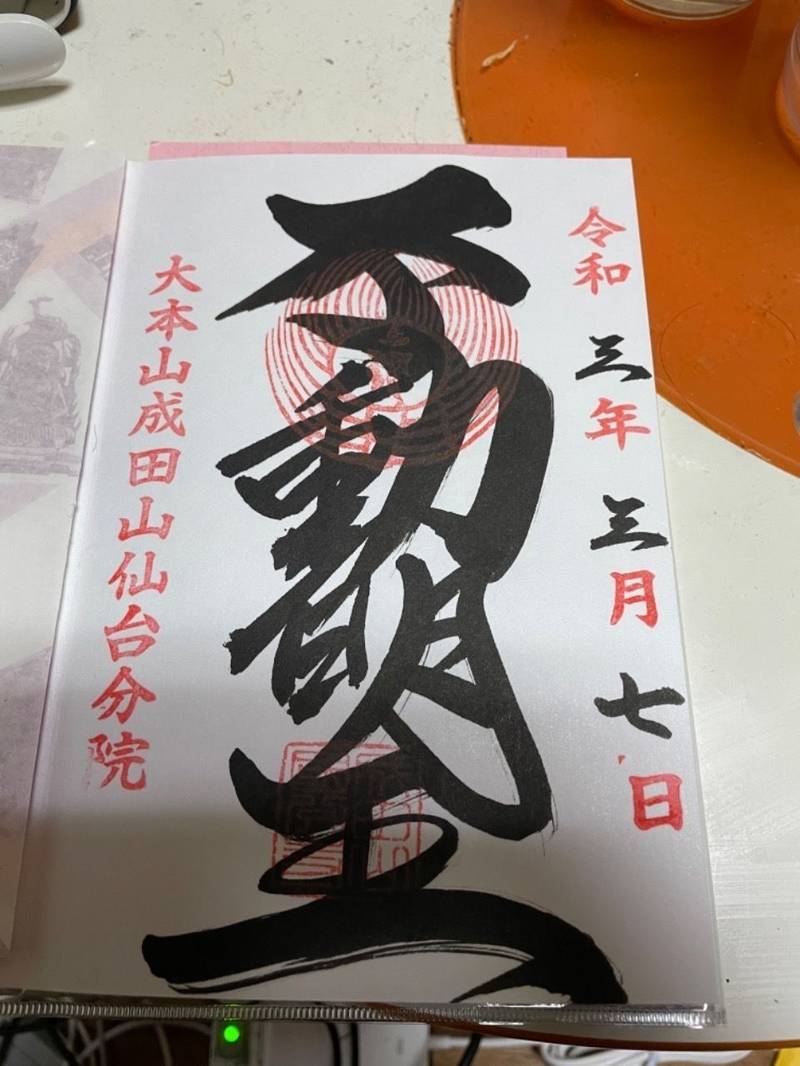 令和三年三月七日
不動明王
大本山成田山仙台分院